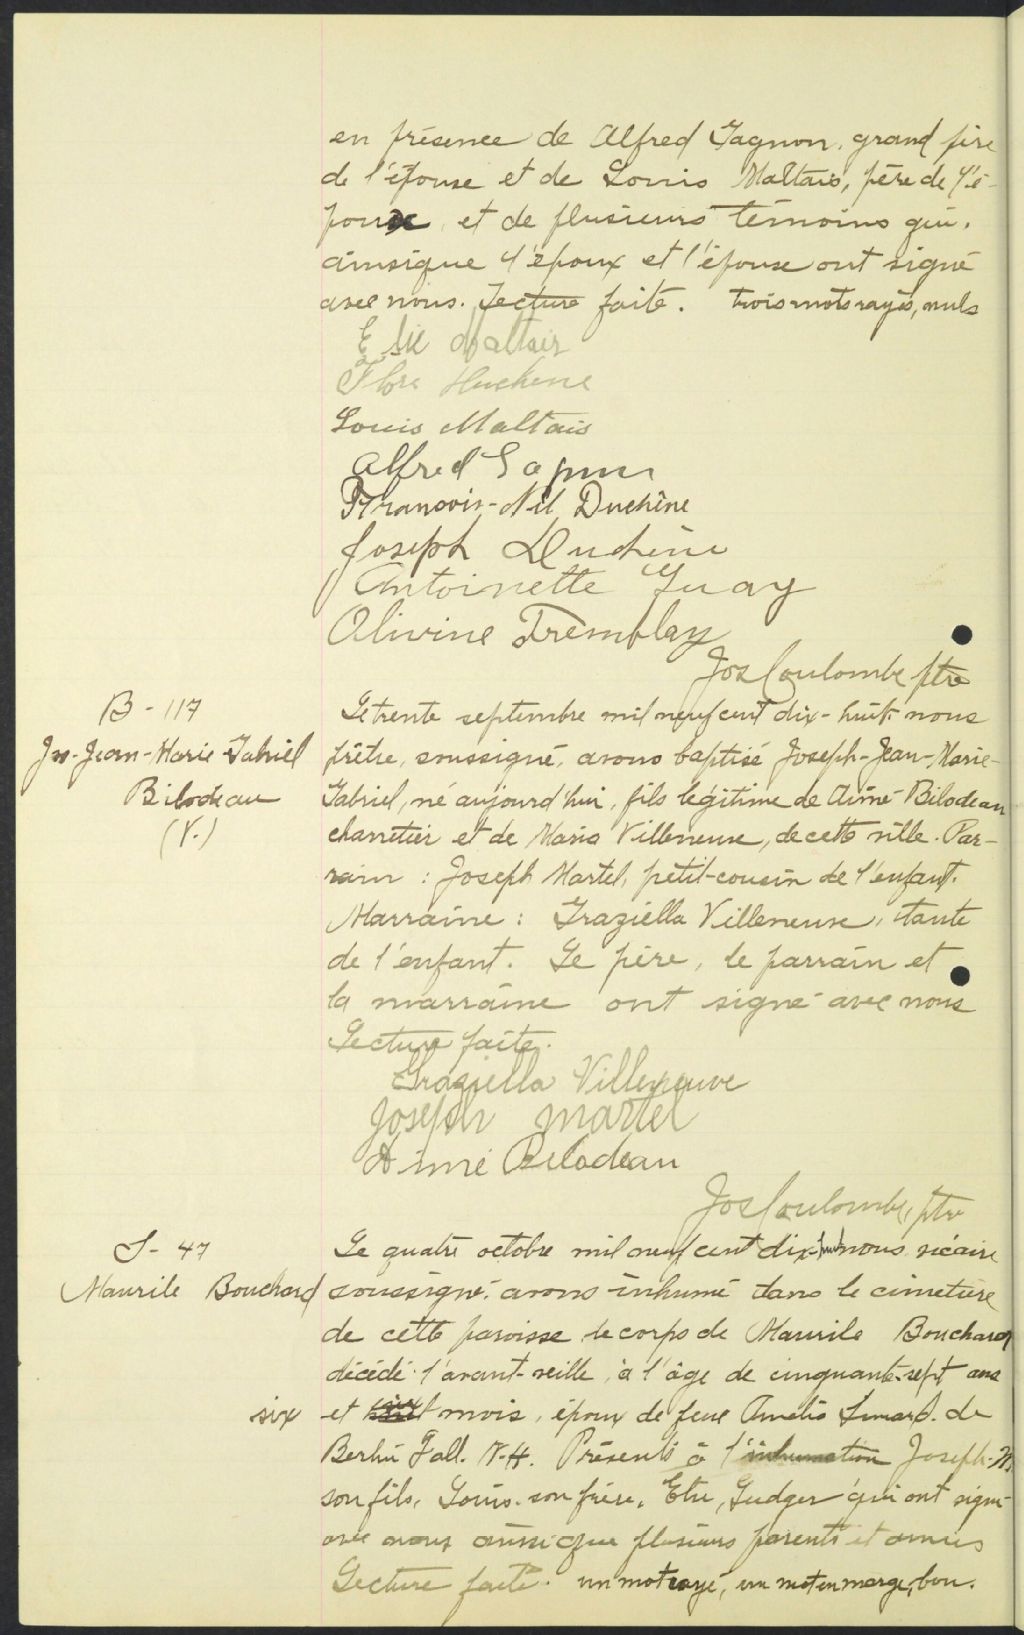 en présence de Alfred Gagnon, grand père
de l'épouse et de Louis Maltais, père de l'é-
poux, et de plusieurs témoins qui,
ainsique l'époux et l'épouse ont signé
avec nous. Lecture faite. trois mots rayés, nuls
Maltais
Flora Duchene
Louis Maltais
Alfred Gagnon
François-Nil Duchêne
Joseph Duchêne
Antoinette Guay
Olivine Tremblay
Jos Coulombe ptre
B - 117
Js-Jean-Marie Gabriel
Bilodeau
(V.)
Le trente septembre mil neuf cent dix-huit nous
prêtre, soussigné, avons baptisé Joseph-Jean-Marie-
Gabriel, né aujourd'hui, fils légitime de Aimé Bilodeau
charretier et de Maria Villeneuve, de cette ville. Par-
rain : Joseph Martel, petit-cousin de l'enfant.
Marraine : Graziella Villeneuve, tante
de l'enfant. Le père, le parrain et
la marraine ont signé avec nous
Lecture faite.
Graziella Villeneuve
Joseph Martel
Aimé Bilodeau
Jos Coulombe, ptre
S - 47
Maurile Bouchard
Le quatre octobre mil neuf cent dix-huit nous vicaire
soussigné, avons inhumé dans le cimetière
de cette paroisse le corps de Maurile Bouchard
décédé l'avant-veille, à l'âge de cinquante-sept ans
six
et mois, époux de feue Amelia Simard. de
Berlin Fall. N-H. Présents à l'inhumation Joseph-M.
son fils, Louis son frère, qui ont signé
avec nous ainsi que plusieurs parents et amis
Lecture faite. un mot rayé, un mot en marge, bon.